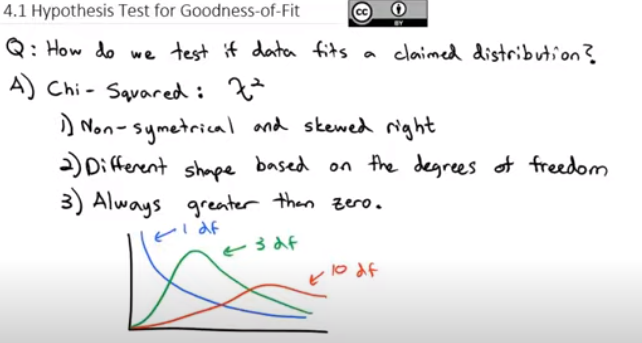 4.1 Hypothesis Test for Goodness-of-Fit
cc BY
Q: How do we test if data fits a claimed distribution?
A) Chi-Squared: χ²
1) Non-symetrical and skewed right
2) Different shape based on the degrees of freedom
3) Always greater than zero.
1 df
3 df
10 df